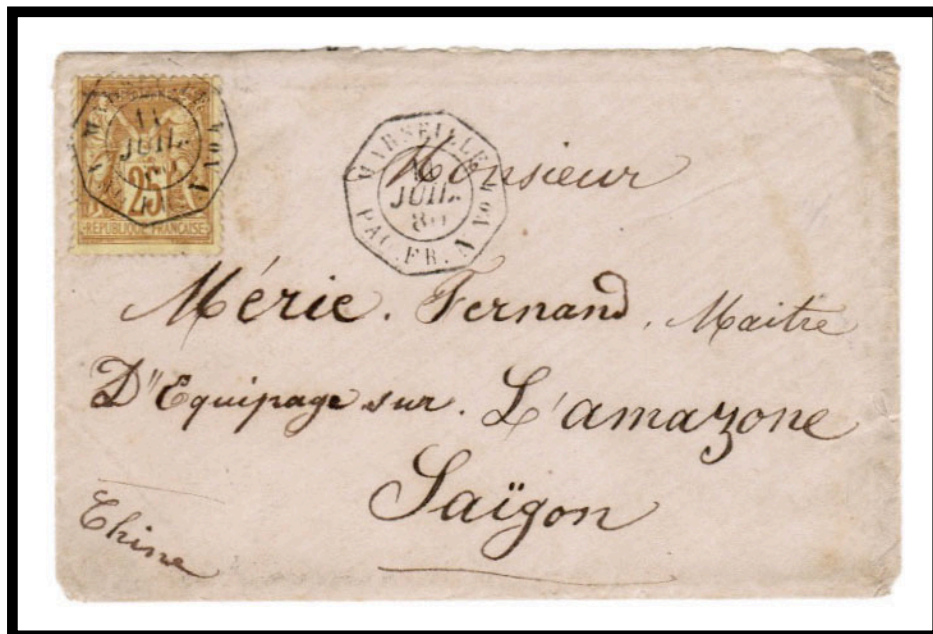 25
REPUBLIQUE FRANÇAISE
JUIL.
MARSEILLE
JUIL.
PAQ. FR. N
Monsieur
Mérie. Fernand. Maitre
D"Equipage sur. L'amazone
Saïgon
Chine